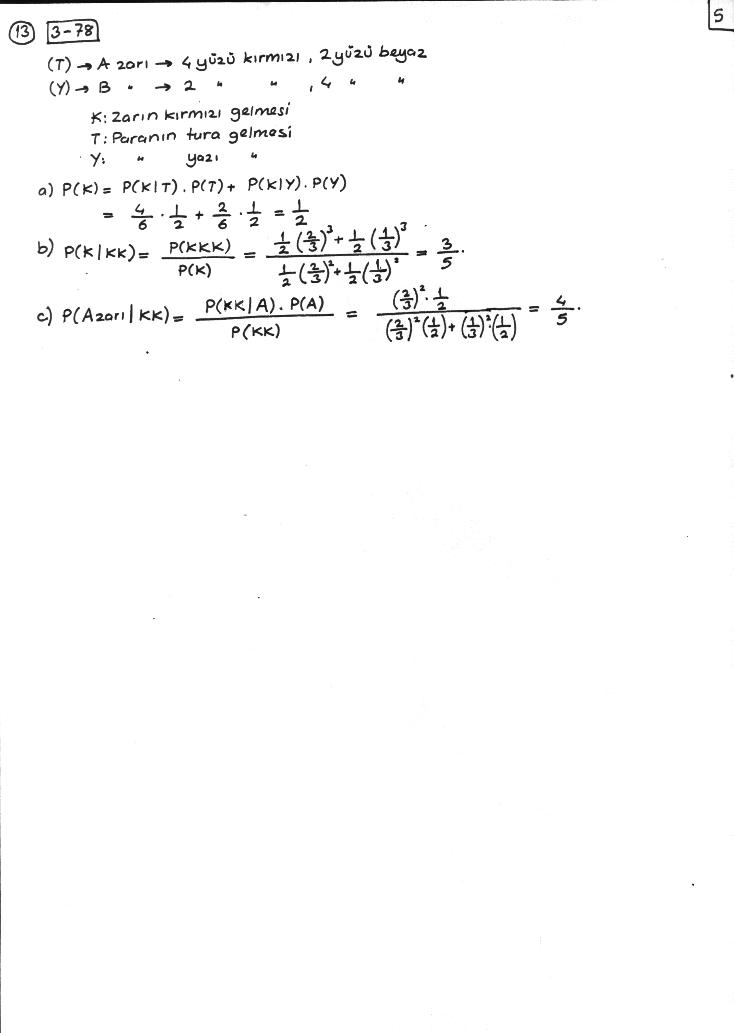 5
13 3-78
(T) → A zarı → 4 yüzü kırmızı, 2 yüzü beyaz
(Y) → B " → 2 " ", 4 " "
K: Zarın kırmızı gelmesi
T: Paranın tura gelmesi
Y: " yazı "
a) P(K) = P(K|T).P(T) + P(K|Y).P(Y)
= 4/6 · 1/2 + 2/6 · 1/2 = 1/2
b) P(K|KK) = P(KKK)/P(K) = (1/2 (2/3)³ + 1/2 (1/3)³)/(1/2 (2/3)² + 1/2 (1/3)²) = 3/5.
c) P(A zarı|KK) = P(KK|A).P(A)/P(KK) = ((2/3)² · 1/2)/((2/3)² (1/2) + (1/3)² · (1/2)) = 4/5.